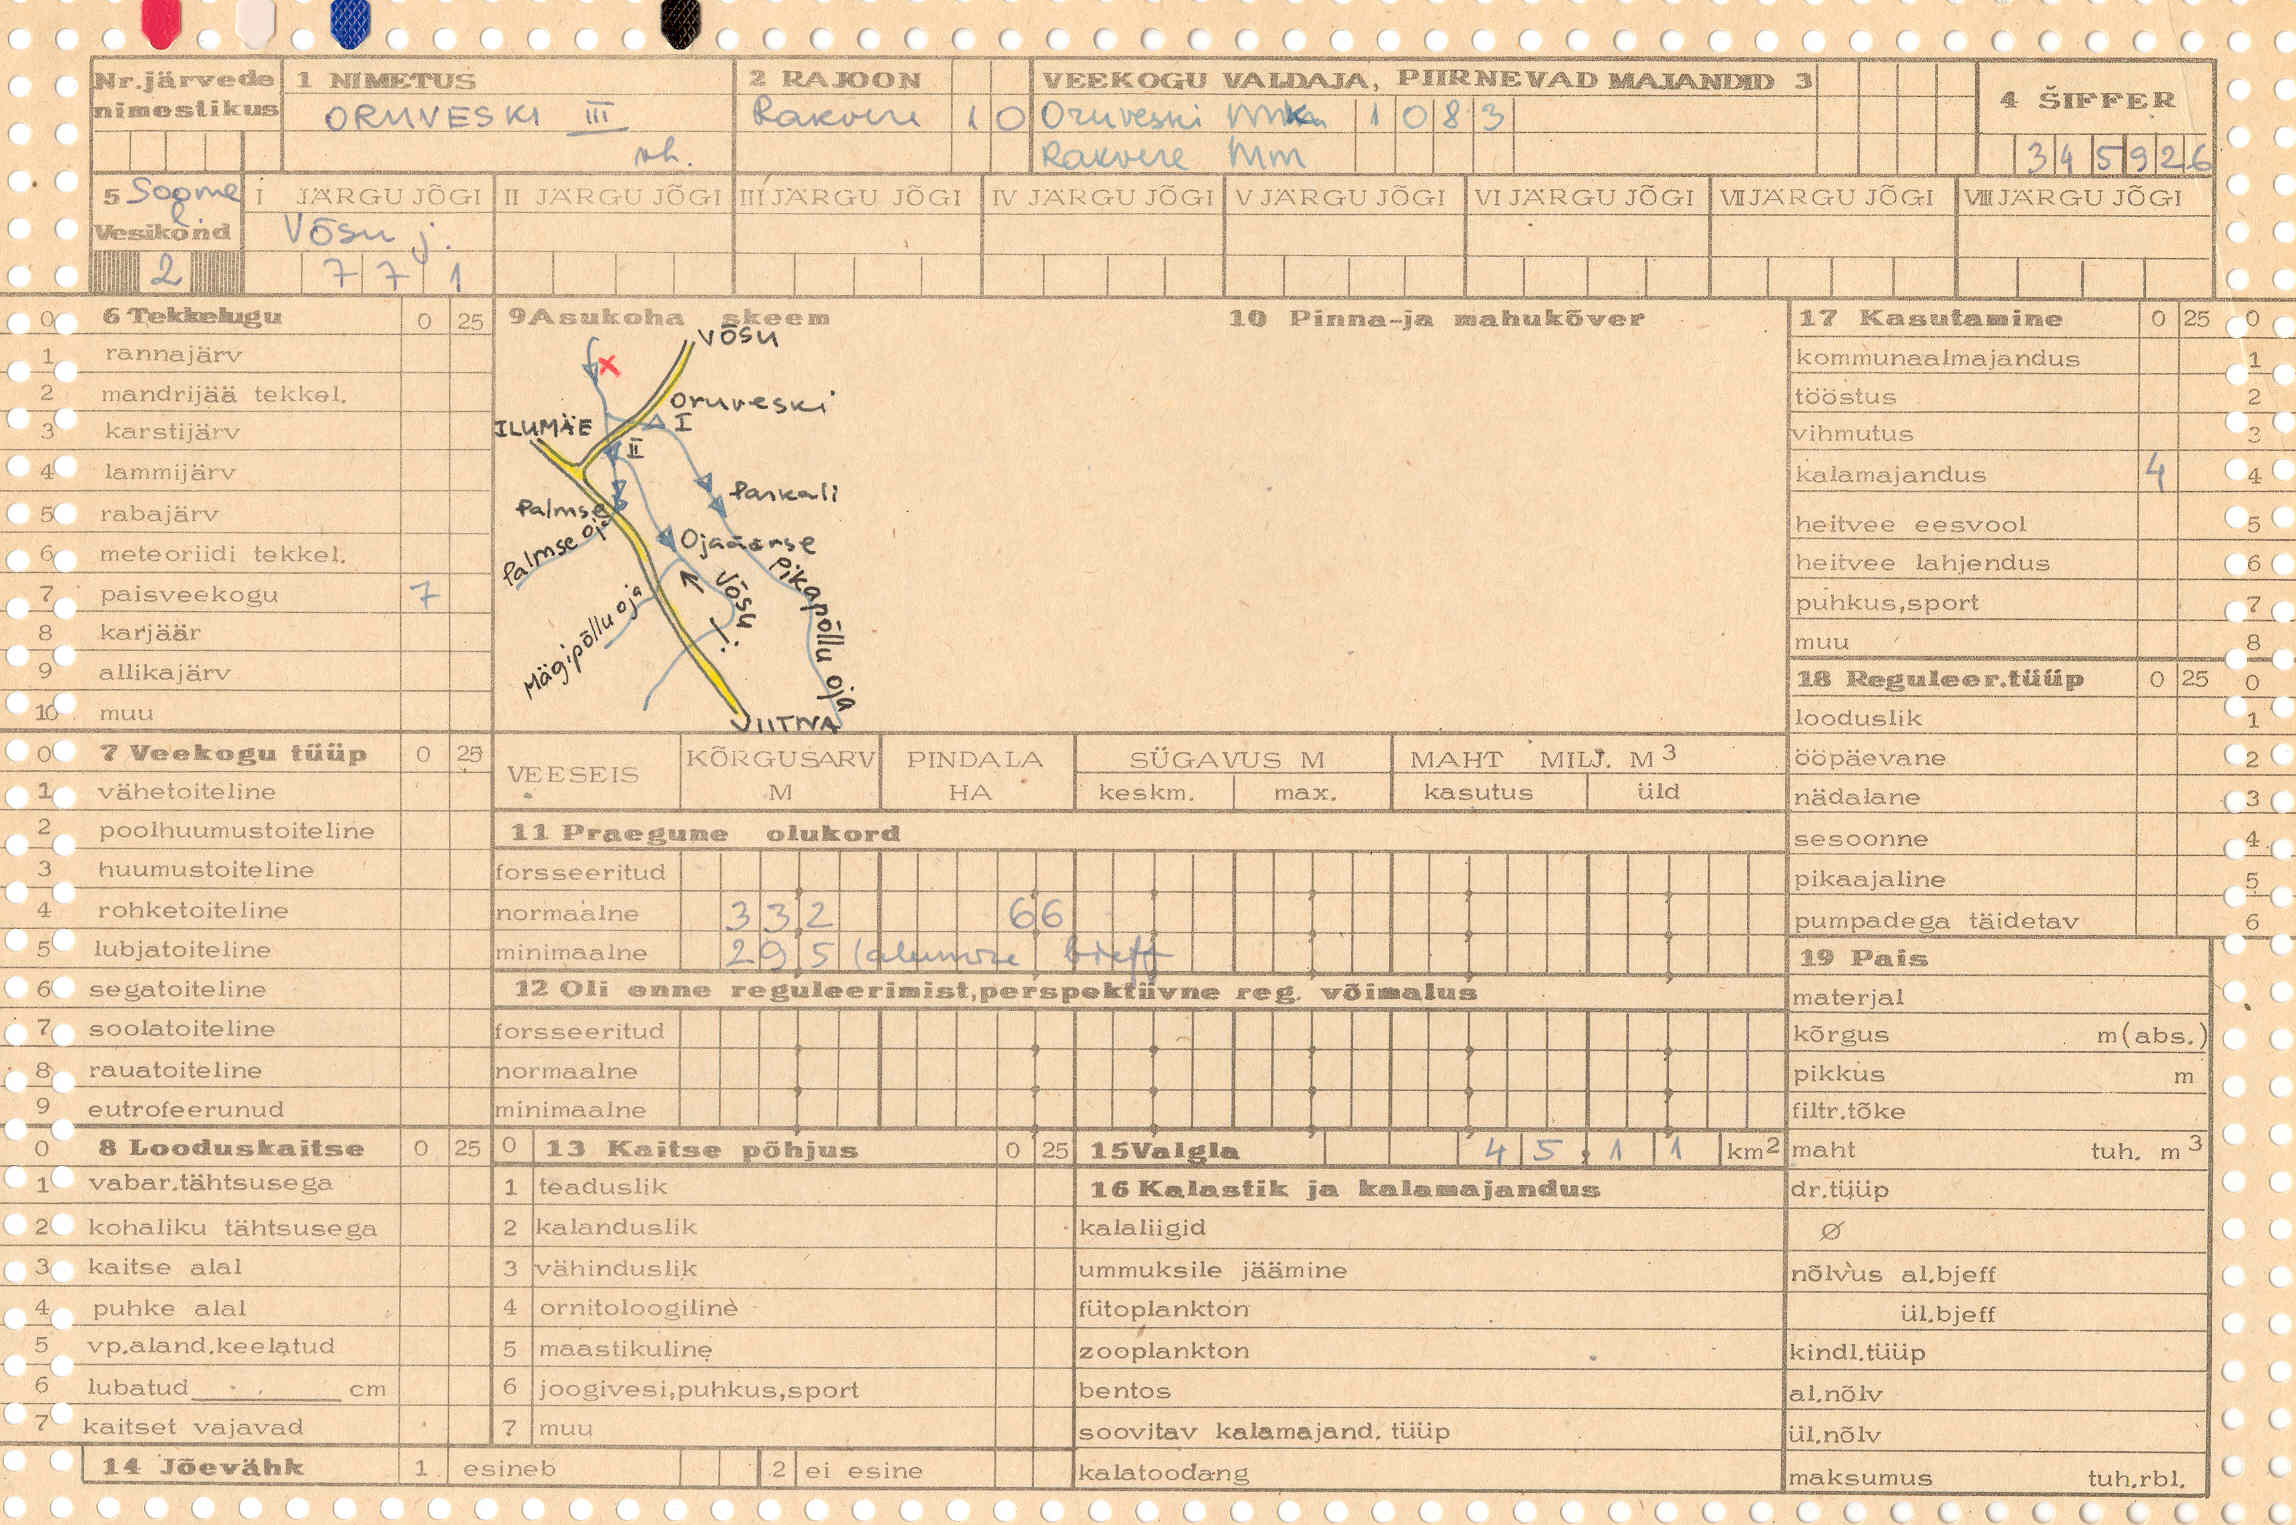 Nr.järvede nimestikus
1 NIMETUS
ORUVESKI III
vh.
2 RAJOON
Rakvere 10
VEEKOGU VALDAJA, PIIRNEVAD MAJANDID 3
Oruveski 1083
Rakvere Mm
4 ŠIFFER
345926
5 Soome l
Vesikond
2
I JÄRGU JÕGI
Võsu j.
771
II JÄRGU JÕGI
III JÄRGU JÕGI
IV JÄRGU JÕGI
V JÄRGU JÕGI
VI JÄRGU JÕGI
VII JÄRGU JÕGI
VIII JÄRGU JÕGI
0 6 Tekkelugu 0 25
1 rannajärv
2 mandrijää tekkel.
3 karstijärv
4 lammijärv
5 rabajärv
6 meteoriidi tekkel.
7 paisveekogu 7
8 karjäär
9 allikajärv
10 muu
0 7 Veekogu tüüp 0 25
1 vähetoiteline
2 poolhuumustoiteline
3 huumustoiteline
4 rohketoiteline
5 lubjatoiteline
6 segatoiteline
7 soolatoiteline
8 rauatoiteline
9 eutrofeerunud
0 8 Looduskaitse 0 25
1 vabar.tähtsusega
2 kohaliku tähtsusega
3 kaitse alal
4 puhke alal
5 vp.aland.keelatud
6 lubatud cm
7 kaitset vajavad
9 Asukoha skeem
VÕSU
Oruveski
I
ILUMÄE
II
Parkali
Palmse
Palmse oja
Ojaäärse
Võsu
Pikapõllu oja
Mägipõllu oja
VIITNA
10 Pinna-ja mahukõver
VEESEIS
KÕRGUSARV M
PINDALA HA
SÜGAVUS M
keskm. max.
MAHT MILJ. M3
kasutus üld
11 Praegune olukord
forsseeritud
normaalne 332 66
minimaalne 295 (alumine bieff
12 Oli enne reguleerimist,perspektiivne reg. võimalus
forsseeritud
normaalne
minimaalne
0 13 Kaitse põhjus 0 25
1 teaduslik
2 kalanduslik
3 vähinduslik
4 ornitoloogiline
5 maastikuline
6 joogivesi,puhkus,sport
7 muu
14 Jõevähk 1 esineb 2 ei esine
15 Valgla 45,11 km2
16 Kalastik ja kalamajandus
kalaliigid
ummuksile jäämine
fütoplankton
zooplankton
bentos
soovitav kalamajand. tüüp
kalatoodang
17 Kasutamine 0 25 0
kommunaalmajandus 1
tööstus 2
vihmutus 3
kalamajandus 4 4
heitvee eesvool 5
heitvee lahjendus 6
puhkus,sport 7
muu 8
18 Reguleer.tüüp 0 25 0
looduslik 1
ööpäevane 2
nädalane 3
sesoonne 4
pikaajaline 5
pumpadega täidetav 6
19 Pais
materjal
kõrgus m(abs.)
pikkus m
filtr.tõke
maht tuh. m3
dr.tüüp
Ø
nõlvus al.bjeff
ül.bjeff
kindl.tüüp
al.nõlv
ül.nõlv
maksumus tuh.rbl.